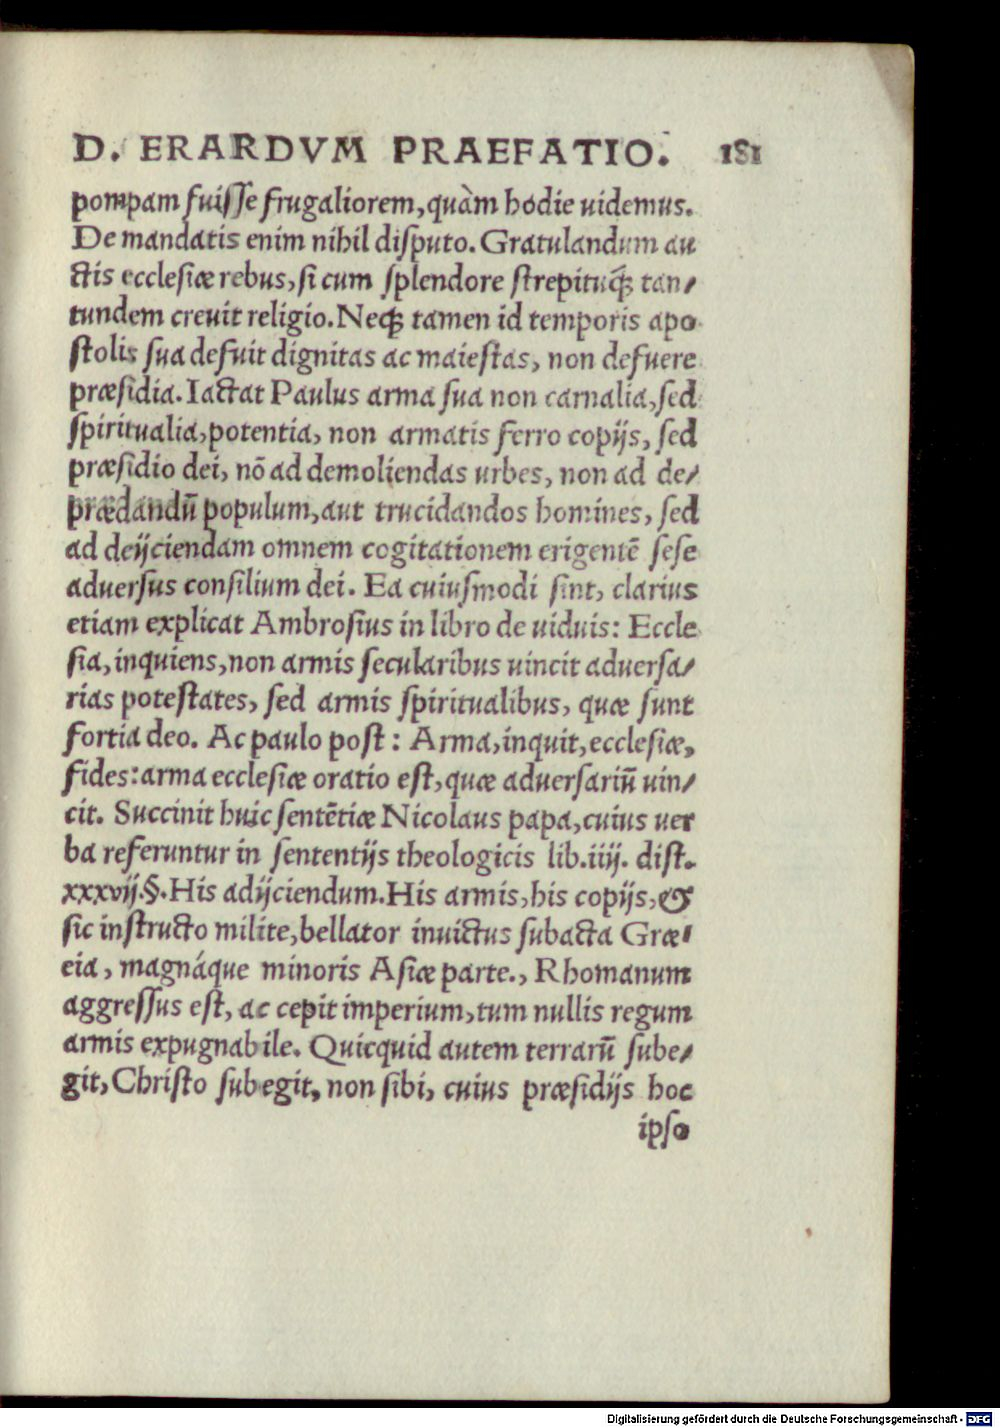 D. ERARDVM PRAEFATIO. 181
pompam fuiſſe frugaliorem, quàm hodie uidemus.
De mandatis enim nihil diſputo. Gratulandum au
ctis eccleſiæ rebus, ſi cum ſplendore ſtrepituq́; tan/
tundem creuit religio. Neq; tamen id temporis apo
ſtolis ſua defuit dignitas ac maieſtas, non defuere
præſidia. Iactat Paulus arma ſua non carnalia, ſed
ſpiritualia, potentia, non armatis ferro copijs, ſed
præſidio dei, nō ad demoliendas urbes, non ad de/
prædandū populum, aut trucidandos homines, ſed
ad deijciendam omnem cogitationem erigentē ſeſe
aduerſus conſilium dei. Ea cuiuſmodi ſint, clarius
etiam explicat Ambroſius in libro de uiduis: Eccle
ſia, inquiens, non armis ſecularibus uincit aduerſa/
rias poteſtates, ſed armis ſpiritualibus, quæ ſunt
fortia deo. Ac paulo poſt: Arma, inquit, eccleſiæ,
fides: arma eccleſiæ oratio eſt, quæ aduerſariū uin/
cit. Succinit huic ſentētiæ Nicolaus papa, cuius uer
ba referuntur in ſententijs theologicis lib.iiij. diſt.
xxxvij.§. His adijciendum. His armis, his copijs, &
ſic inſtructo milite, bellator inuictus ſubacta Græ/
cia, magnáque minoris Aſiæ parte., Rhomanum
aggreſſus eſt, ac cepit imperium, tum nullis regum
armis expugnabile. Quicquid autem terrarū ſube/
git, Chriſto ſubegit, non ſibi, cuius præſidijs hoc
ipſo
Digitalisierung gefördert durch die Deutsche Forschungsgemeinschaft - DFG